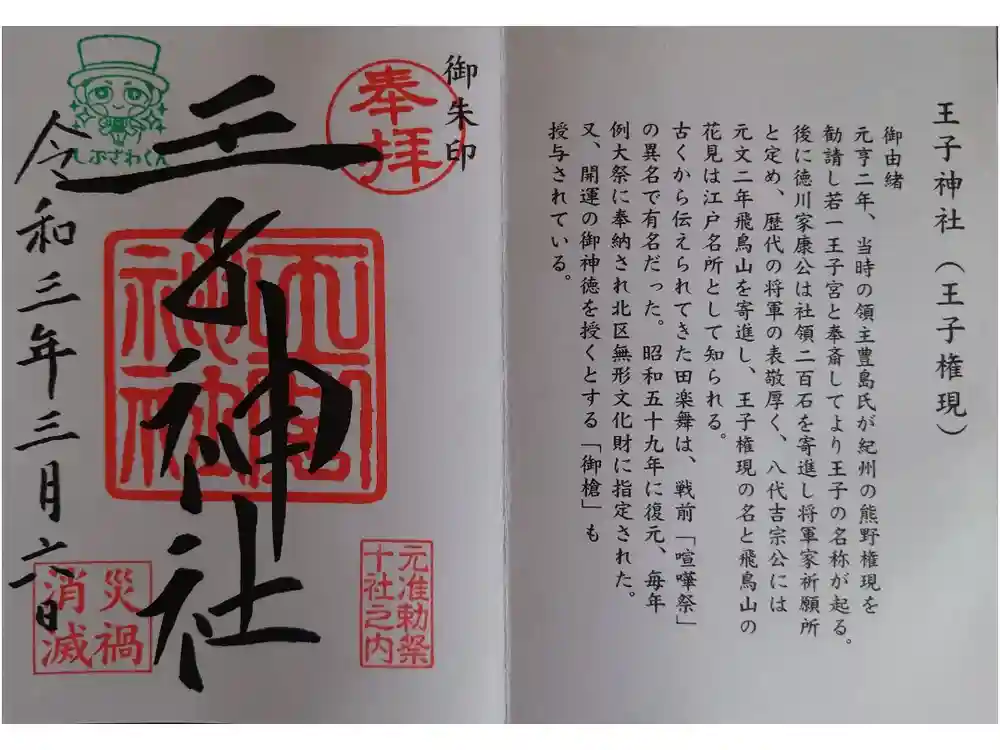 王子神社(王子権現)
御由緒
元亨二年、当時の領主豊島氏が紀州の熊野権現を
勧請し若一王子宮と奉斎してより王子の名称が起る。
後に徳川家康公は社領二百石を寄進し将軍家祈願所
と定め、歴代の将軍の表敬厚く、八代吉宗公には
元文二年飛鳥山を寄進し、王子権現の名と飛鳥山の
花見は江戸名所として知られる。
古くから伝えられてきた田楽舞は、戦前「喧嘩祭」
の異名で有名だった。昭和五十九年に復元、毎年
例大祭に奉納され北区無形文化財に指定された。
又、開運の御神徳を授くとする「御槍」も
授与されている。
御朱印
奉拝
元准勅祭
十社之内
王子神社
しぶさわくん
令和三年三月六日
災禍
消滅